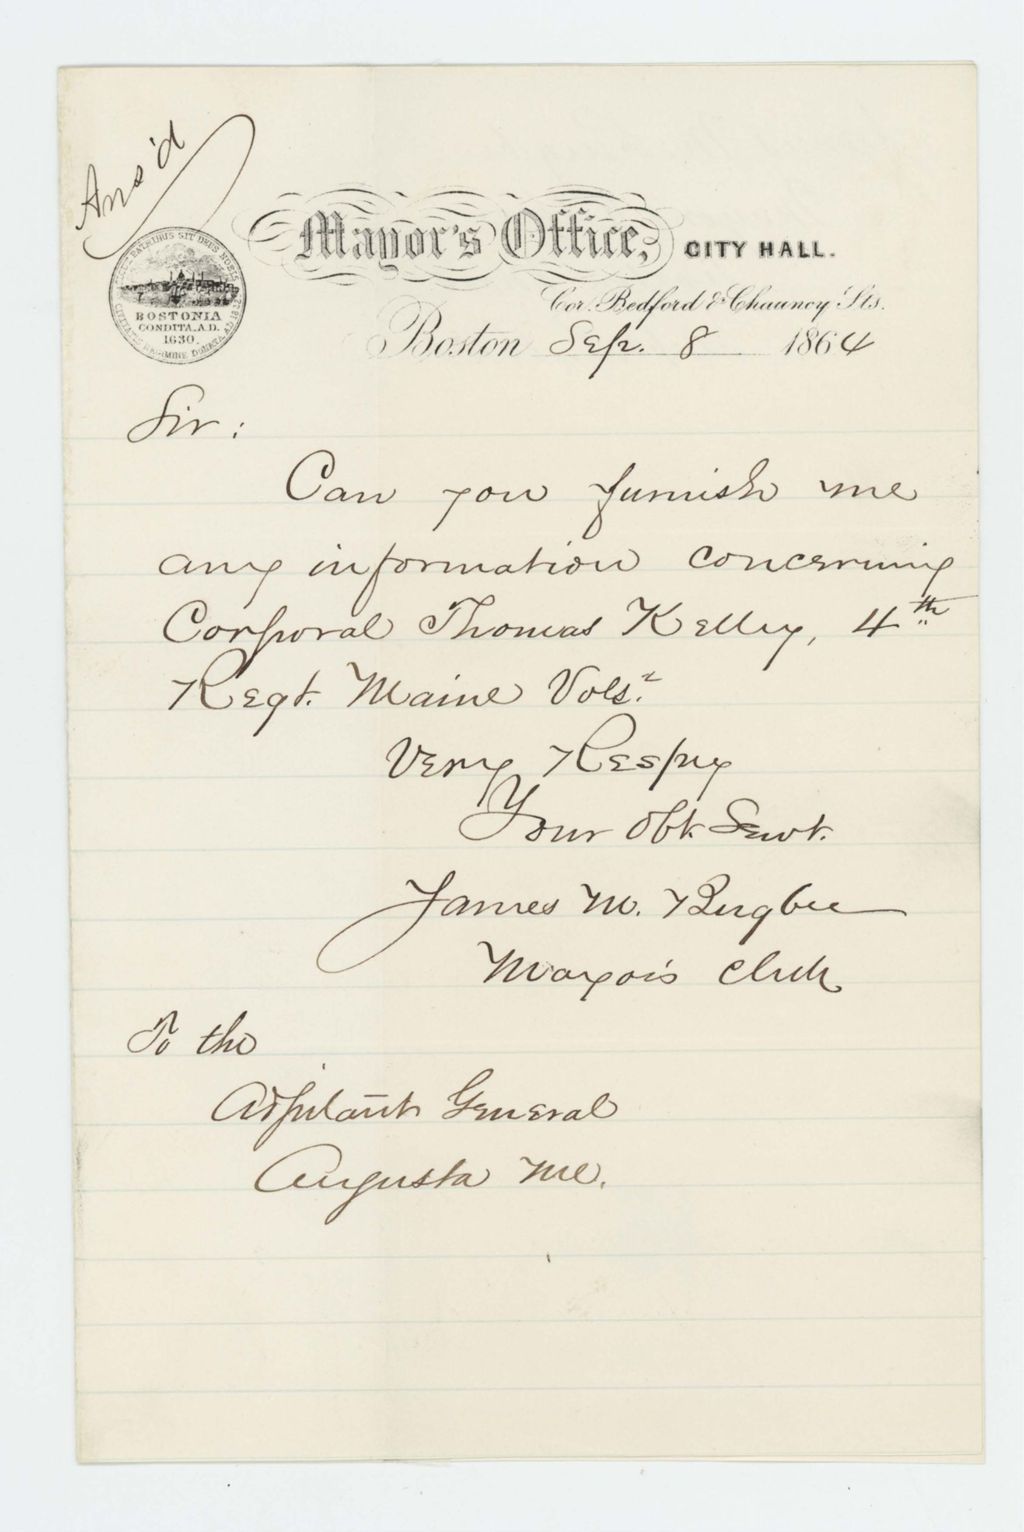 Ans'd
Mayor's Office, CITY HALL.
Cor. Bedford & Chauncy Sts.
Boston Sep. 8 1864
SICUT PATRIBUS SIT DEUS NOBIS
BOSTONIA
CONDITA. A.D.
1630.
CIVITATIS REGIMINE DONATA. AD. 1822
Sir:
Can you furnish me
any information concerning
Corporal Thomas Kelley, 4th
Regt. Maine Vols.
Very Respy
Your Obt. Servt.
James M. Bugbee
Mayor's Clerk
To the
Adjutant General
Augusta Me.